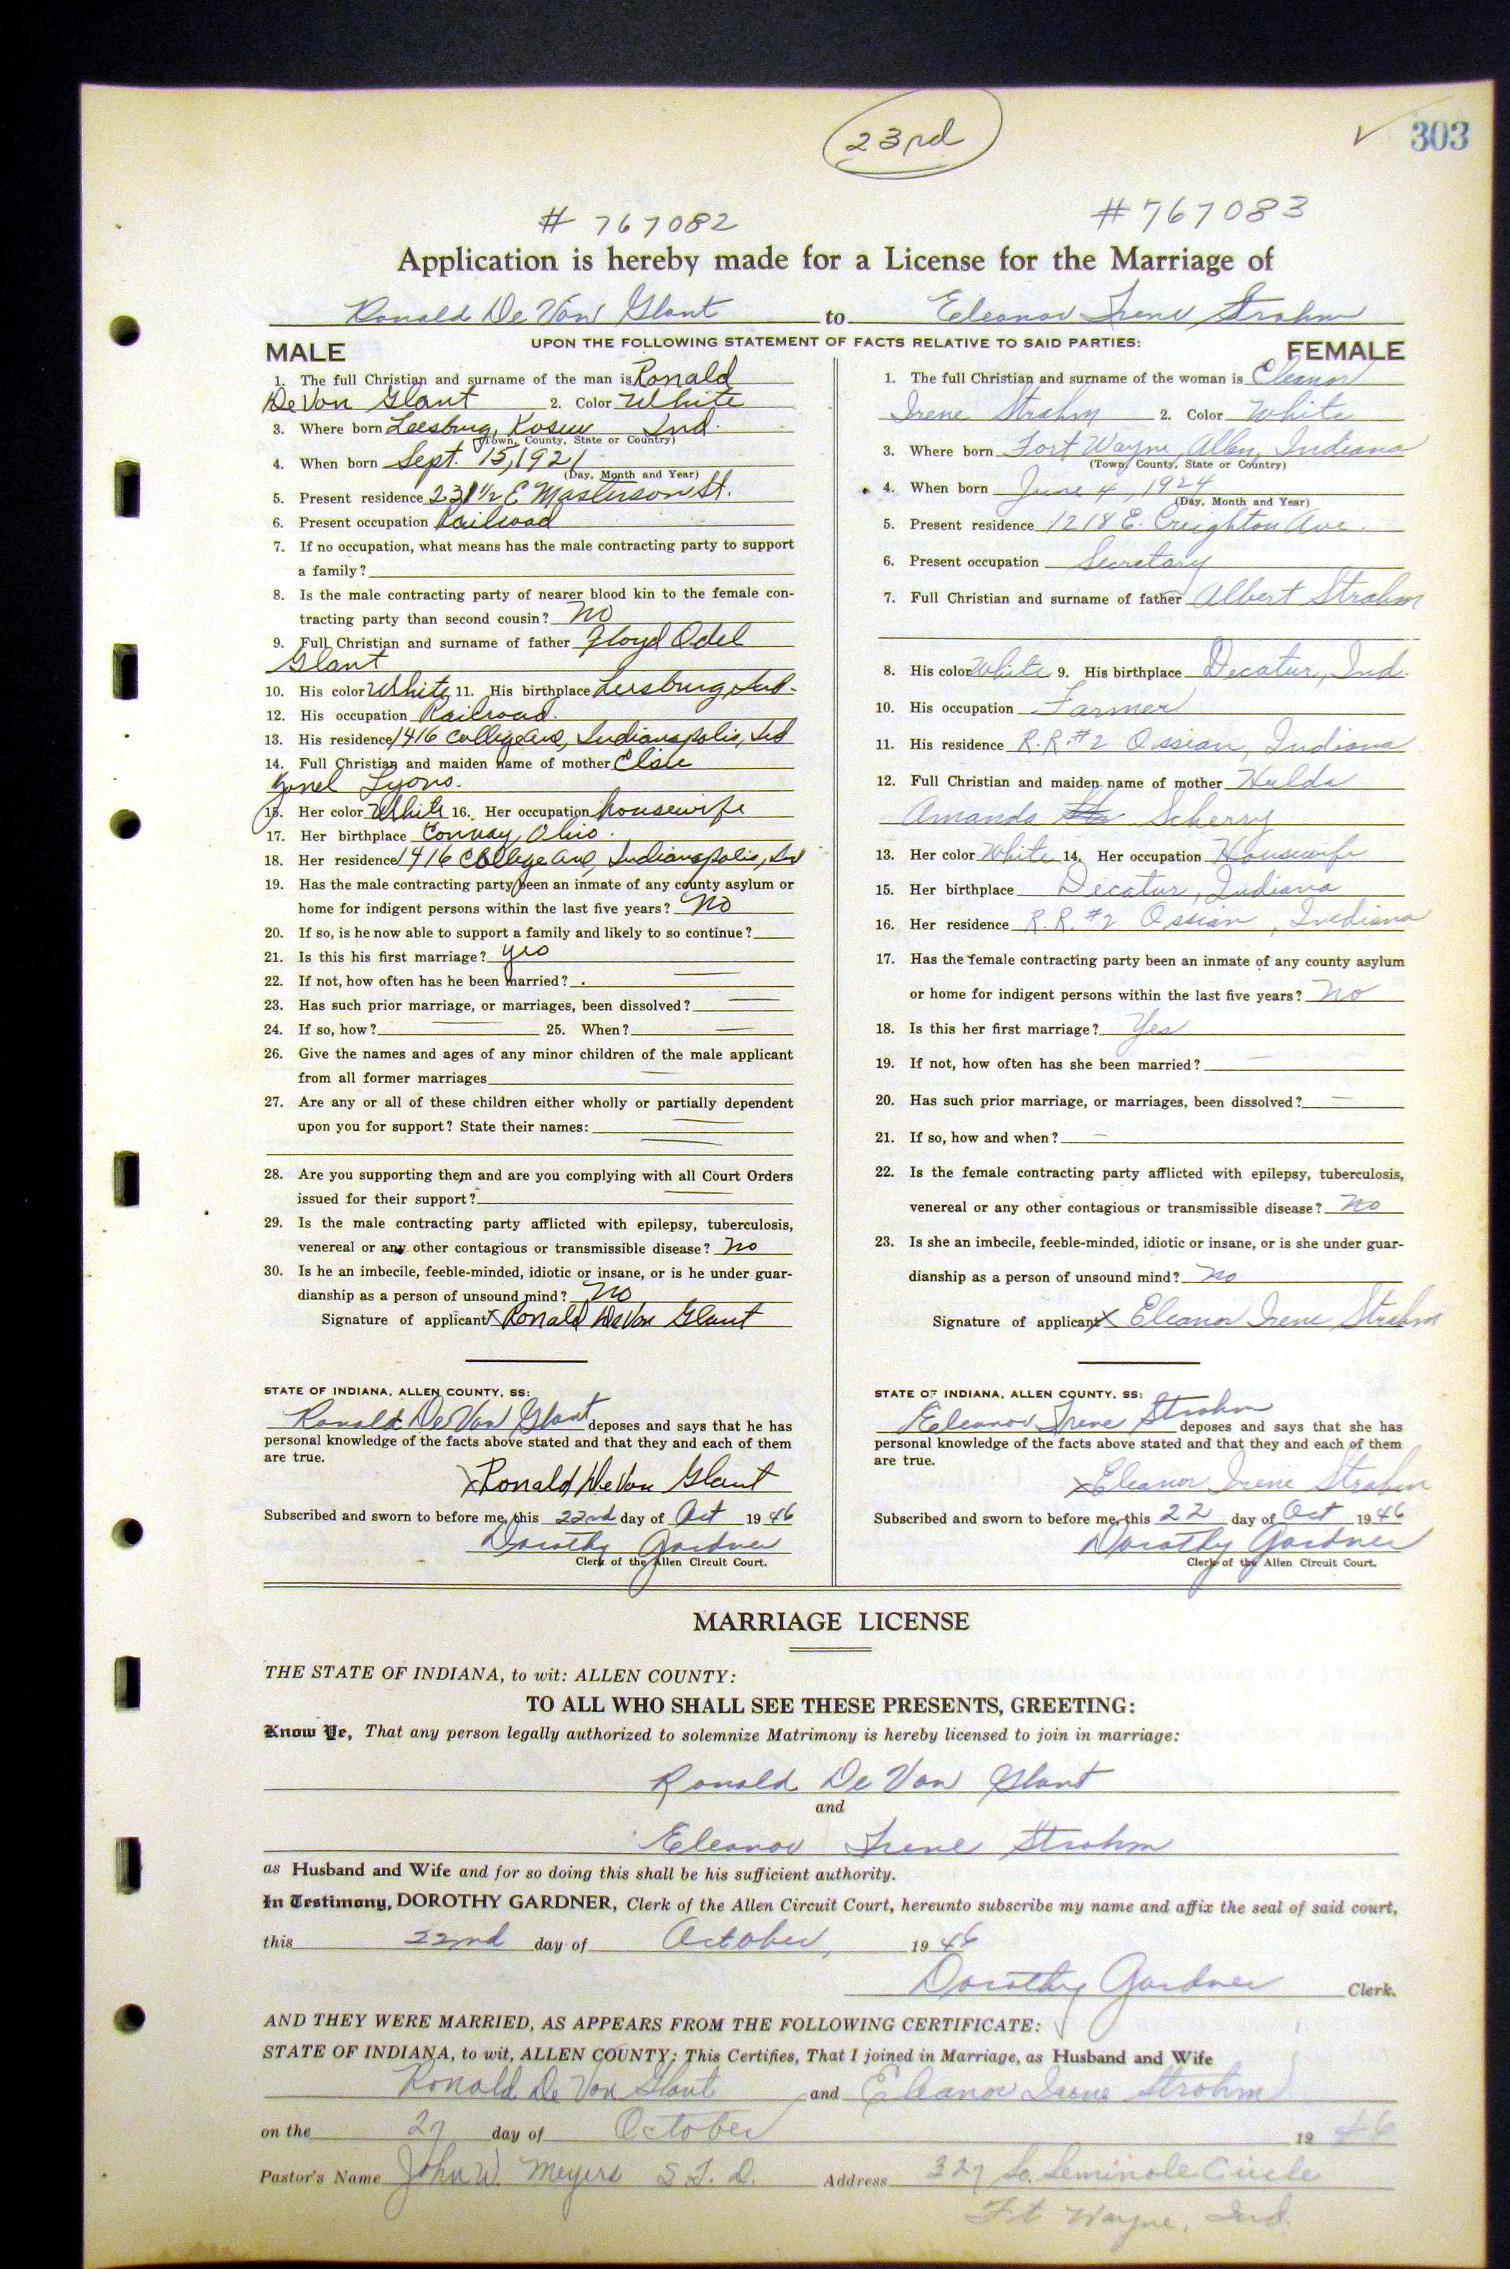 23rd
303
# 767082
# 767083
Application is hereby made for a License for the Marriage of
Ronald De Von Glant to Eleanor Irene Strahm
UPON THE FOLLOWING STATEMENT OF FACTS RELATIVE TO SAID PARTIES:
MALE
1. The full Christian and surname of the man is Ronald
DeVon Glant 2. Color White
3. Where born Leesburg, Ind.
(Town, County, State or Country)
4. When born Sept. 15, 1921
(Day, Month and Year)
5. Present residence 231½ E Masterson St.
6. Present occupation Railroad
7. If no occupation, what means has the male contracting party to support
a family?
8. Is the male contracting party of nearer blood kin to the female con-
tracting party than second cousin? No
9. Full Christian and surname of father Floyd Odel
Glant
10. His color White 11. His birthplace Leesburg, Ind.
12. His occupation Railroad.
13. His residence 1416 College Ave, Indianapolis, Ind
14. Full Christian and maiden name of mother Elsie
Lyons.
15. Her color White 16. Her occupation housewife
17. Her birthplace Ohio.
18. Her residence 1416 College Ave, Indianapolis, Ind
19. Has the male contracting party been an inmate of any county asylum or
home for indigent persons within the last five years? No
20. If so, is he now able to support a family and likely to so continue?
21. Is this his first marriage? yes
22. If not, how often has he been married?
23. Has such prior marriage, or marriages, been dissolved?
24. If so, how? 25. When?
26. Give the names and ages of any minor children of the male applicant
from all former marriages
27. Are any or all of these children either wholly or partially dependent
upon you for support? State their names:
28. Are you supporting them and are you complying with all Court Orders
issued for their support?
29. Is the male contracting party afflicted with epilepsy, tuberculosis,
venereal or any other contagious or transmissible disease? No
30. Is he an imbecile, feeble-minded, idiotic or insane, or is he under guar-
dianship as a person of unsound mind? No
Signature of applicant X Ronald DeVon Glant
STATE OF INDIANA, ALLEN COUNTY, SS:
Ronald De Von Glant deposes and says that he has
personal knowledge of the facts above stated and that they and each of them
are true.
X Ronald DeVon Glant
Subscribed and sworn to before me, this 22nd day of Oct 1946
Dorothy Gardner
Clerk of the Allen Circuit Court.
FEMALE
1. The full Christian and surname of the woman is Eleanor
Irene Strahm 2. Color White
3. Where born Fort Wayne, Allen, Indiana
(Town, County, State or Country)
4. When born June 4, 1924
(Day, Month and Year)
5. Present residence 1218 E. Creighton Ave.
6. Present occupation Secretary
7. Full Christian and surname of father Albert Strahm
8. His color White 9. His birthplace Decatur, Ind.
10. His occupation Farmer
11. His residence R.R. #2 Ossian, Indiana
12. Full Christian and maiden name of mother Hulda
Amanda Scherry
13. Her color White 14. Her occupation Housewife
15. Her birthplace Decatur, Indiana
16. Her residence R.R. #2 Ossian, Indiana
17. Has the female contracting party been an inmate of any county asylum
or home for indigent persons within the last five years? No
18. Is this her first marriage? Yes
19. If not, how often has she been married?
20. Has such prior marriage, or marriages, been dissolved?
21. If so, how and when?
22. Is the female contracting party afflicted with epilepsy, tuberculosis,
venereal or any other contagious or transmissible disease? No
23. Is she an imbecile, feeble-minded, idiotic or insane, or is she under guar-
dianship as a person of unsound mind? No
Signature of applicant X Eleanor Irene Strahm
STATE OF INDIANA, ALLEN COUNTY, SS:
Eleanor Irene Strahm deposes and says that she has
personal knowledge of the facts above stated and that they and each of them
are true.
X Eleanor Irene Strahm
Subscribed and sworn to before me, this 22 day of Oct 1946
Dorothy Gardner
Clerk of the Allen Circuit Court.
MARRIAGE LICENSE
THE STATE OF INDIANA, to wit: ALLEN COUNTY:
TO ALL WHO SHALL SEE THESE PRESENTS, GREETING:
Know Ye, That any person legally authorized to solemnize Matrimony is hereby licensed to join in marriage:
Ronald De Von Glant
and
Eleanor Irene Strahm
as Husband and Wife and for so doing this shall be his sufficient authority.
In Testimony, DOROTHY GARDNER, Clerk of the Allen Circuit Court, hereunto subscribe my name and affix the seal of said court,
this 22nd day of October, 1946
Dorothy Gardner Clerk.
AND THEY WERE MARRIED, AS APPEARS FROM THE FOLLOWING CERTIFICATE:
STATE OF INDIANA, to wit, ALLEN COUNTY; This Certifies, That I joined in Marriage, as Husband and Wife
Ronald De Von Glant and Eleanor Irene Strahm
on the 27 day of October 1946
Pastor's Name John W. Meyers S.T.D. Address 327 So. Seminole Circle
Ft Wayne, Ind.